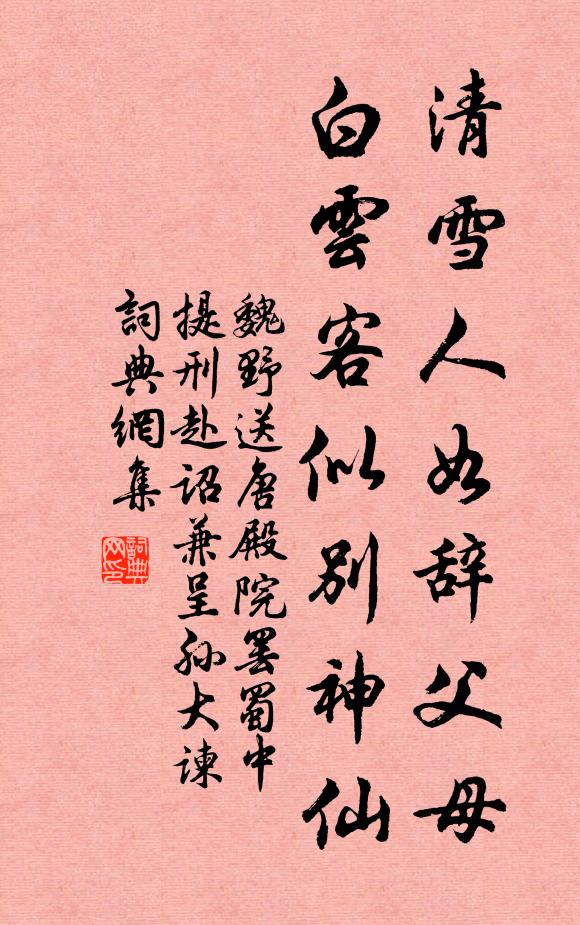 清雪人如辞父母
白雲客似别神仙
魏野送唐殿院罢蜀中
提刑赴诏兼呈孙大谏
詞典網集
詞典
网印